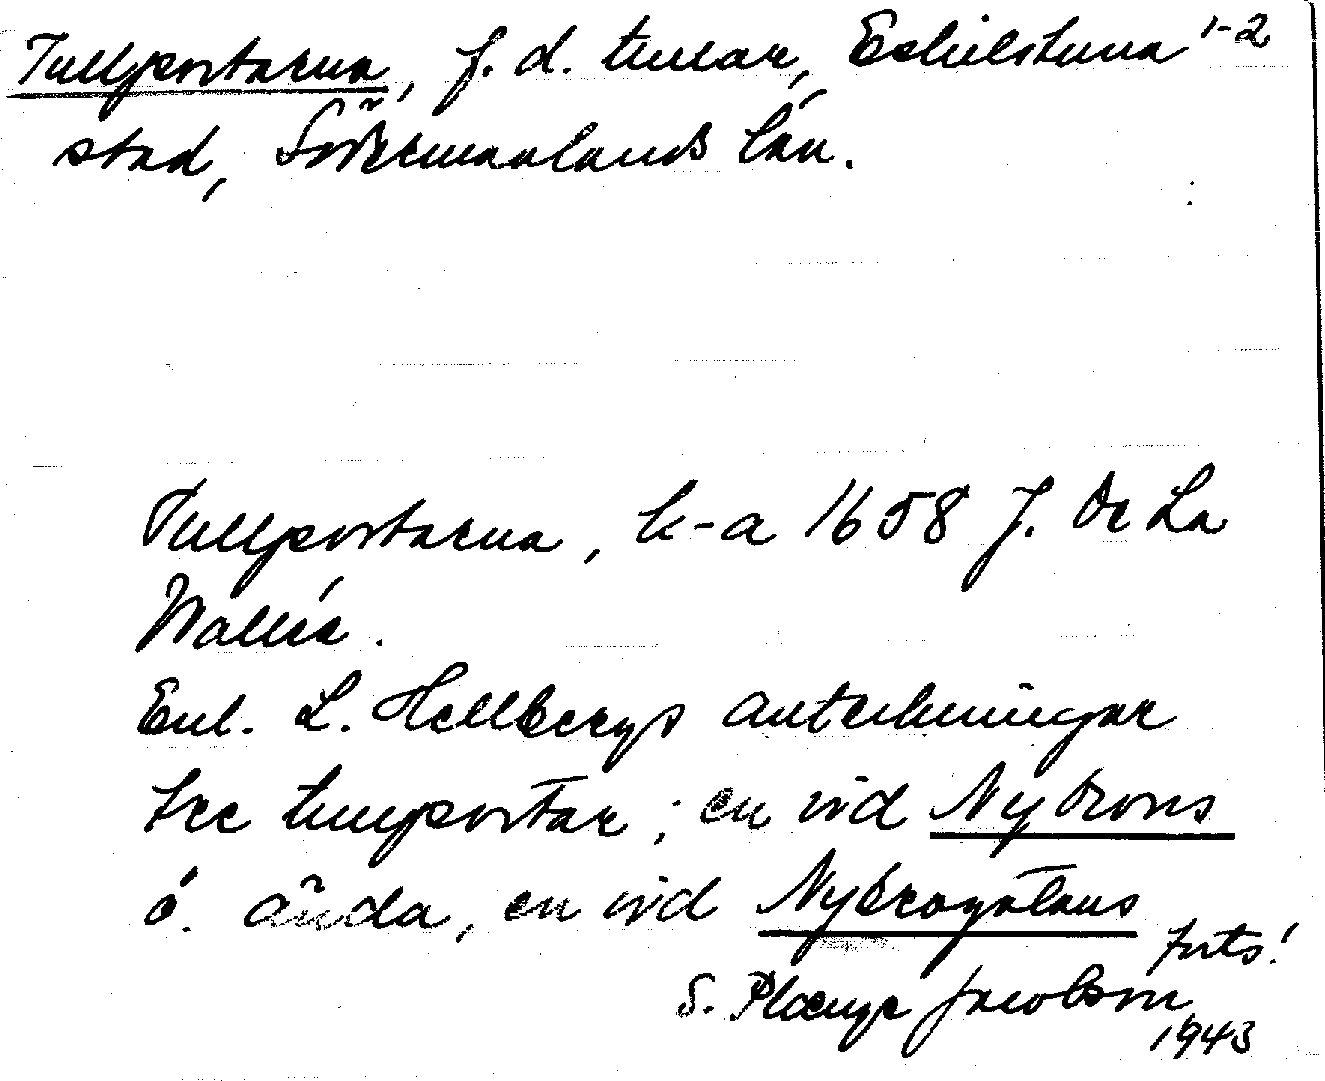 Tullportarna, f. d. tullar, Eskilstuna 1-2
stad, Södermanlands län.
Tullportarna, k-a 1658 J. De La
Vallée.
Enl. L. Hellbergs anteckningar
tre tullportar; en vid Nybrons
ö. ända, en vid Nybrogatans
forts!
S. Plænge Jacobson
1943